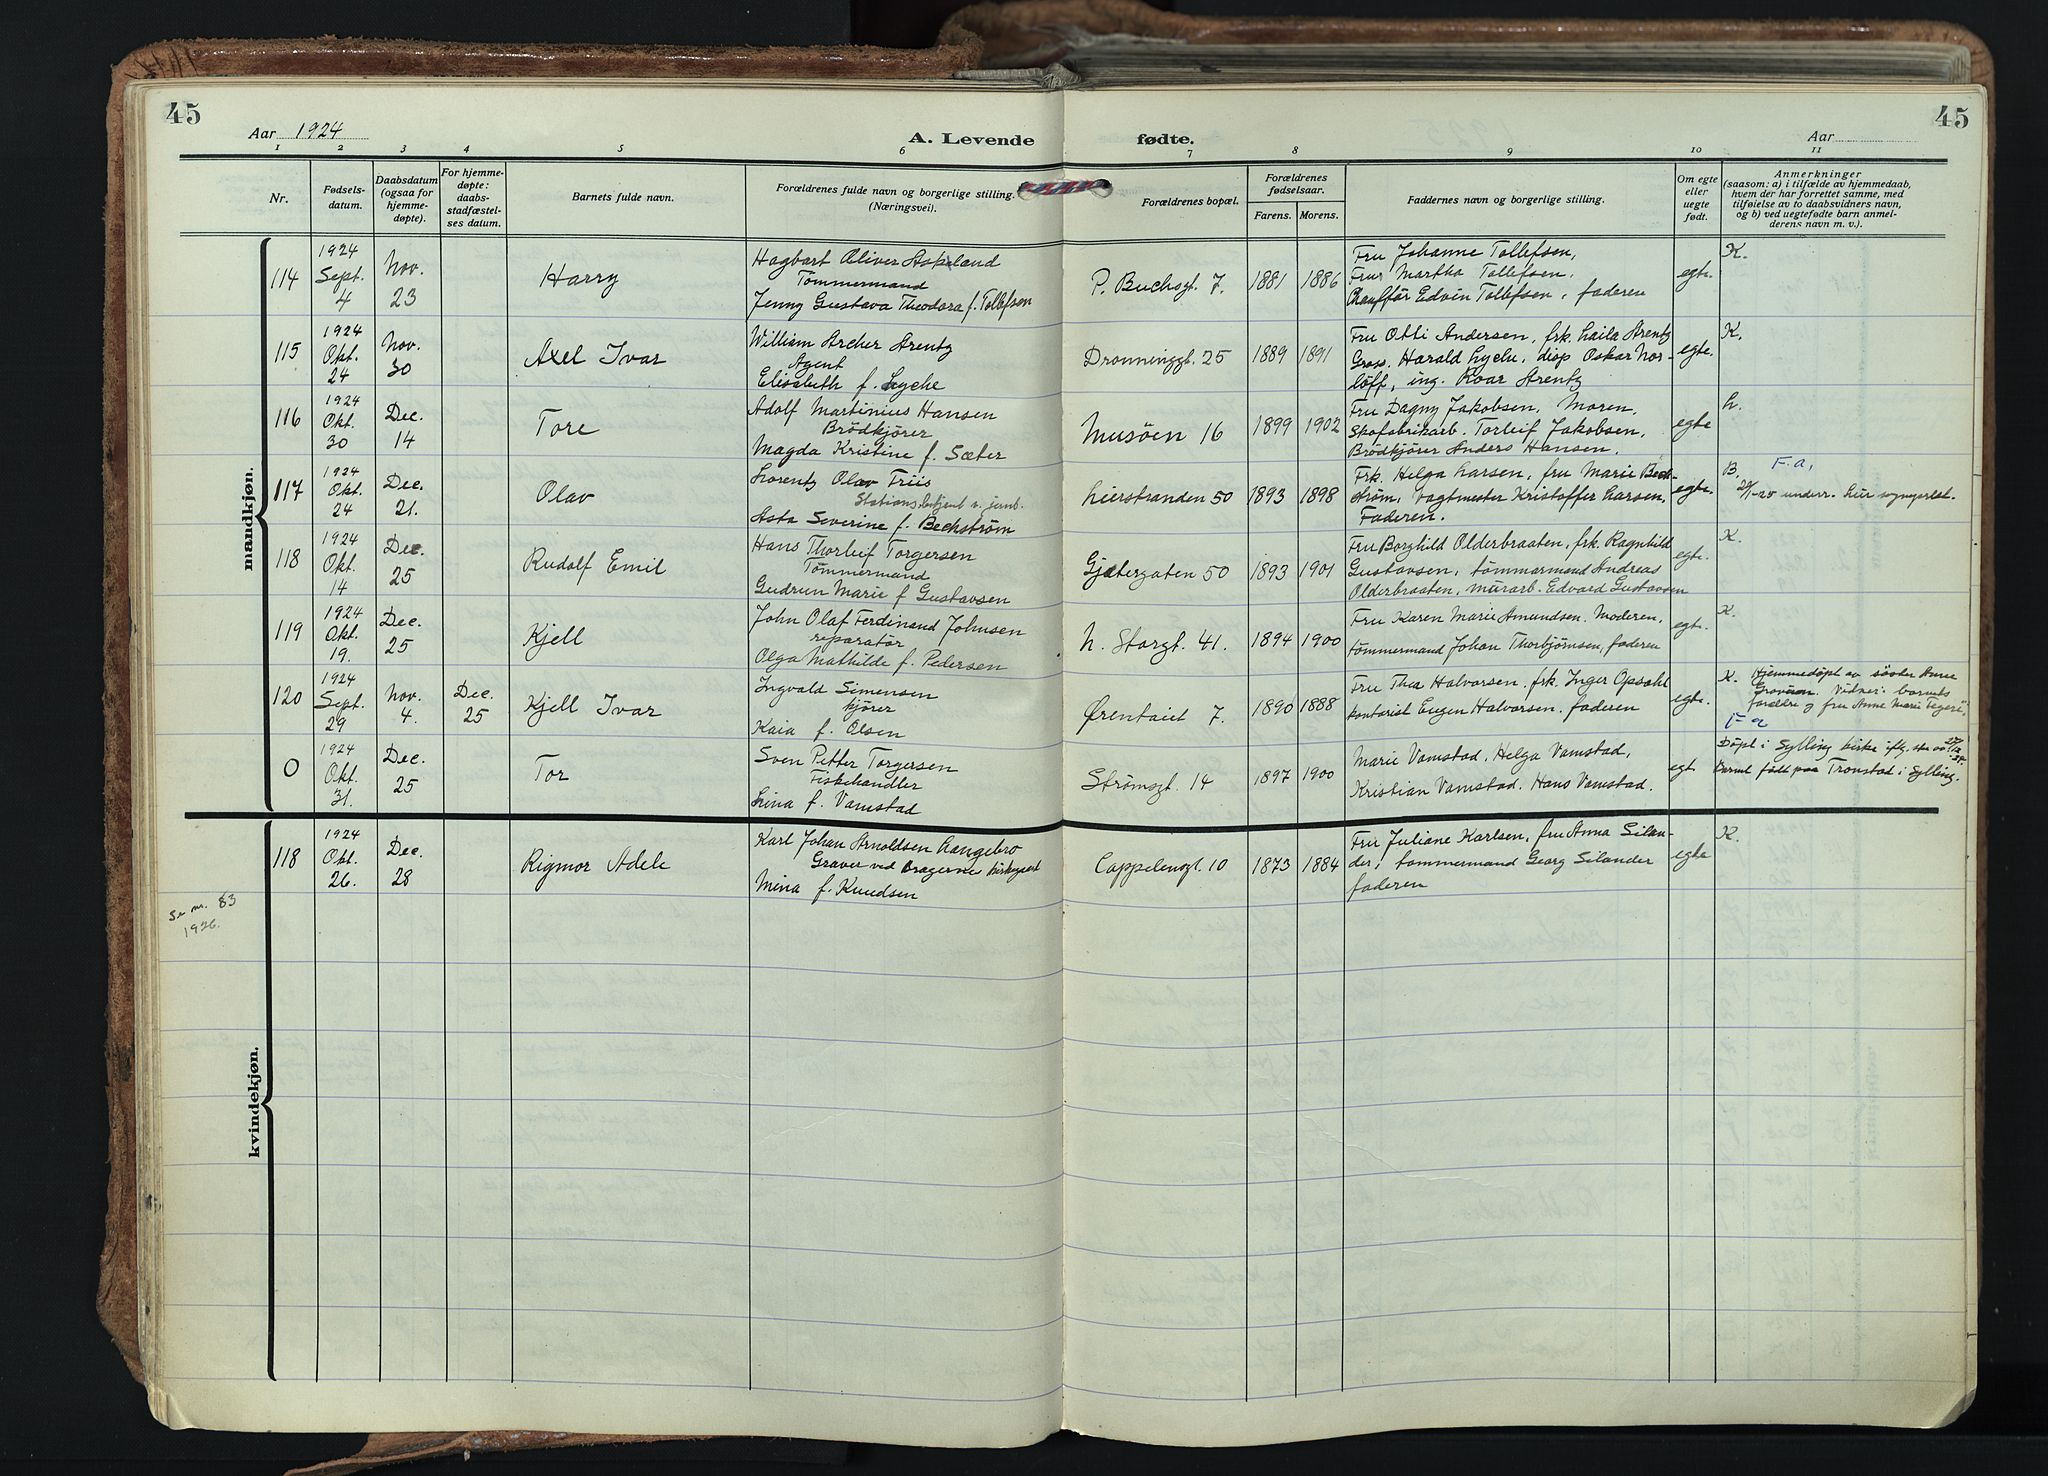 45
45
Aar 1924
A. Levende fødte.
Aar
1 2 3 4 5 6 7 8 9 10 11
Nr.
Fødsels-
datum.
Daabsdatum
(ogsaa for
hjemme-
døpte).
For hjemme-
døpte:
daabs-
stadfæstel-
ses datum.
Barnets fulde navn.
Forældrenes fulde navn og borgerlige stilling.
(Næringsvei).
Forældrenes bopæl.
Forældrenes
fødselsaar.
Farens. Morens.
Faddernes navn og borgerlige stilling.
Om egte
eller
uegte
født.
Anmerkninger
(saasom: a) i tilfælde av hjemmedaab,
hvem der har forrettet samme, med
tilføielse av to daabsvidners navn,
og b) ved uegtefødte barn anmel-
derens navn m. v.).
mandkjøn.
114
1924
Sept.
4
Nov.
23
Harry
Hagbart Oliver Askeland
Tømmermand
Jenny Gustava Theodora f. Tollefsen
P. Buchsgt. 7.
1881 1886
Fru Johanne Tollefsen,
Frur Martha Tollefsen,
Chauffør Edvin Tollefsen, faderen
egte.
K.
115
1924
Okt.
24
Nov.
30
Axel Ivar
William Archer Arentz
Agent
Elisabeth f. Lyche
Dronninggt. 25
1889 1891
Fru Otti Andersen, frk. Laila Arentz
Gross. Harald Lyche, disp Oskar Nor-
löff, ing. Roar Arentz
egte.
K.
116
1924
Okt.
30
Dec.
14
Tore
Adolf Martinius Hansen
Brödkjörer
Magda Kristine f. Sæter
Musöen 16
1899 1902
Fru Dagny Jakobsen, Moren,
Skofabrikarb. Torleif Jakobsen,
Brödkjörer Anders Hansen.
egte
L.
117
1924
Okt.
24
Dec.
21.
Olav
Lorentz Olav Friis
Stations betjent v. jernb.
Asta Severine f. Bechström
Lierstranden 50
1893 1898
Frk. Helga Larsen, fru Marie Bech-
ström, Vagtmester Kristoffer Larsen,
Faderen.
egte.
B. F. a,
underr. Lier sogneprest.
118
1924
Okt.
14
Dec.
25
Rudolf Emil
Hans Thorleif Torgersen
Tømmermand
Gudrun Marie f Gustavsen
Gjetergaten 50
1893 1901
Fru Borghild Olderbraaten, frk. Ragnhild
Gustavsen, tömmermand Andreas
Olderbraaten, murarb. Edvard Gustavsen
egte.
K.
119
1924
Okt.
19.
Dec.
25
Kjell
John Olaf Ferdinand Johnsen
reparatör
Olga Mathilde f. Pedersen
N. Storgt. 41.
1894 1900
Fru Karen Marie Amundsen. Moderen,
tömmermand Johan Thorbjörnsen, faderen
egte.
K.
120
1924
Sept.
29
Nov.
4.
Dec.
25
Kjell Ivar
Ingvald Simensen
kjörer
Kaia f. Olsen
Ørentaiet 7.
1890 1888
Fru Thea Halvorsen. frk. Inger Opsahl
kontorist Eugen Halvorsen. faderen
egte.
K. Hjemmedöpt av söster Anne
Vidner: barnets
forældre og fru Anne Marie
F. a
0
1924
Okt.
31.
Dec.
25
Tor
Sven Petter Torgersen
Fiskehandler
Lina f. Vamstad
Strömsgt. 14
1897 1900
Marie Vamstad, Helga Vamstad,
Kristian Vamstad. Hans Vamstad.
egt.
Döpt i Sylling kirke iflg.
Barnet född paa Tronstad i Sylling.
kvindekjøn.
118
1924
Okt.
26.
Dec.
28
Rigmor Adele
Karl Johan Arnoldsen Langebro
Graver ved Bragernes kirkegaard
Mina f. Knudsen
Cappelensgt. 10
1873 1884
Fru Juliane Karlsen, fru Anna Silan-
der, tommermand Georg Silander
faderen
egte
K.
Se nr. 83
1926.